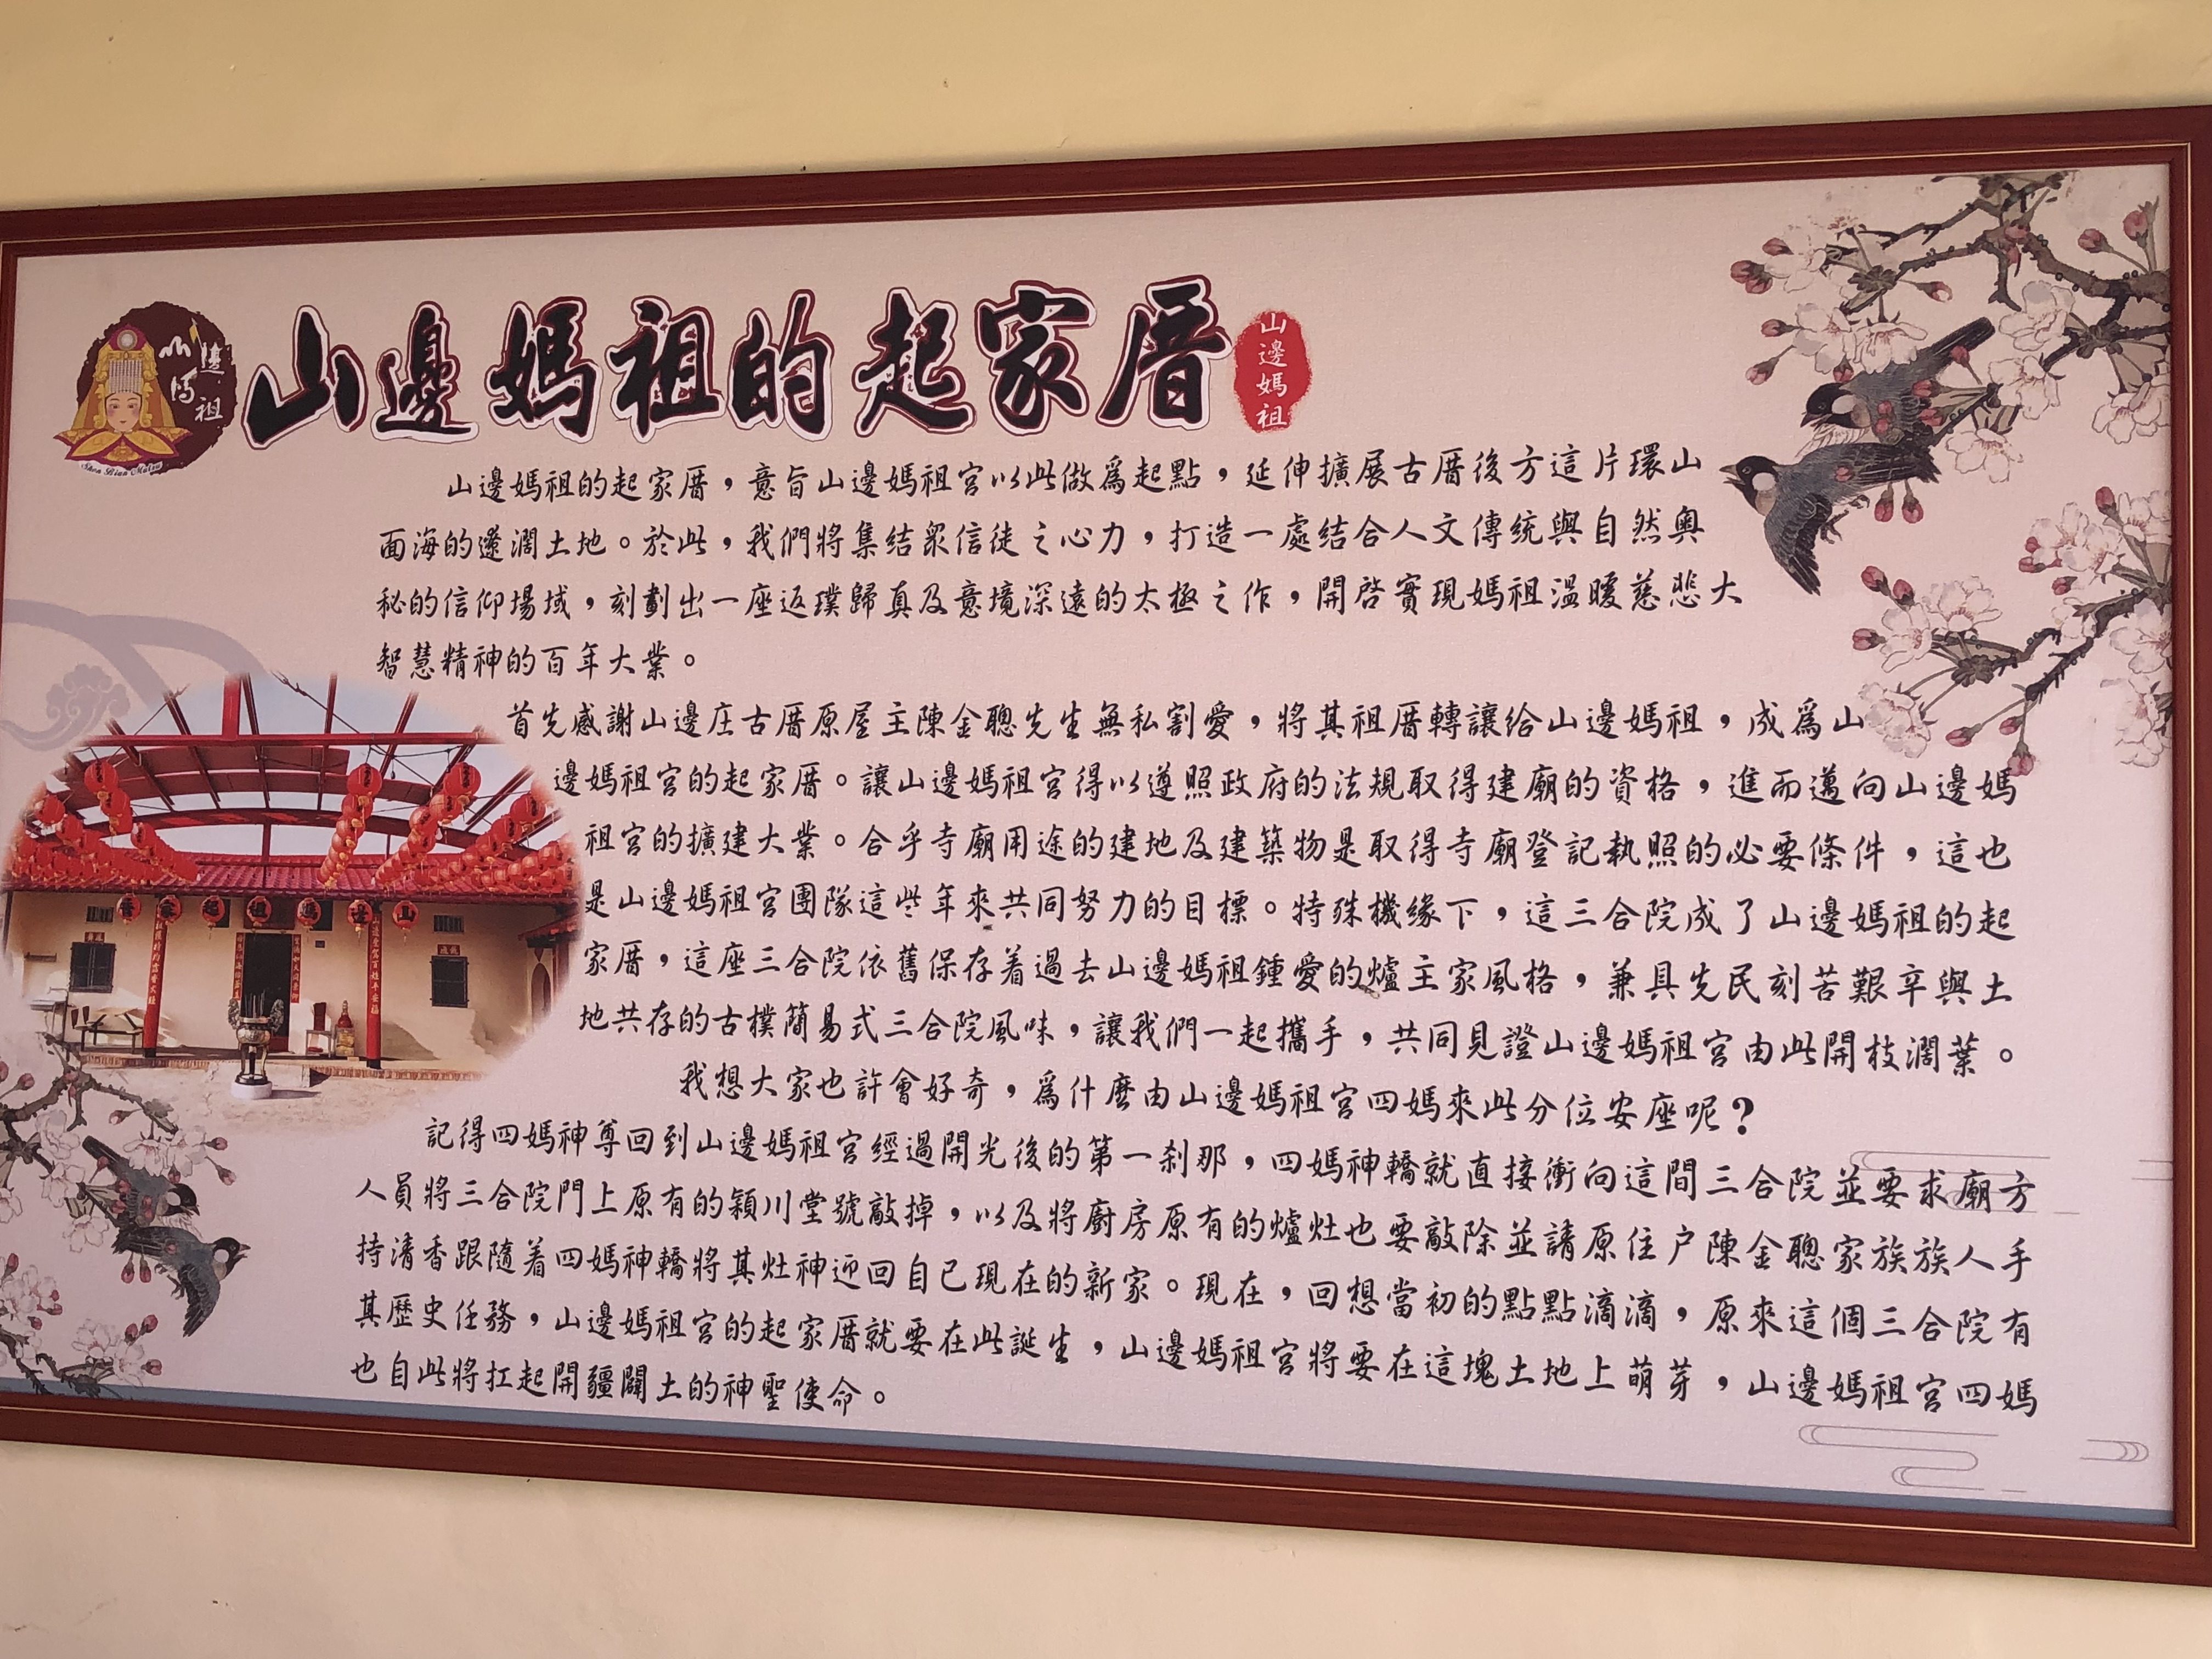 山邊媽祖
Shan Bian Matzu
山邊媽祖的起家厝
山邊媽祖
山邊媽祖的起家厝，意旨山邊媽祖宮以此做為起點，延伸擴展古厝後方這片環山
面海的遼濶土地。於此，我們將集結眾信徒之心力，打造一處結合人文傳統與自然奧
秘的信仰場域，刻劃出一座返璞歸真及意境深遠的太極之作，開啓實現媽祖溫暖慈悲大
智慧精神的百年大業。
首先感謝山邊庄古厝原屋主陳金聰先生無私割愛，將其祖厝轉讓給山邊媽祖，成為山
邊媽祖宮的起家厝。讓山邊媽祖宮得以遵照政府的法規取得建廟的資格，進而邁向山邊媽
祖宮的擴建大業。合乎寺廟用途的建地及建築物是取得寺廟登記執照的必要條件，這也
是山邊媽祖宮團隊這些年來共同努力的目標。特殊機緣下，這三合院成了山邊媽祖的起
家厝，這座三合院依舊保存着過去山邊媽祖鍾愛的爐主家風格，兼具先民刻苦艱辛與土
地共存的古樸簡易式三合院風味，讓我們一起攜手，共同見證山邊媽祖宮由此開枝濶葉。
我想大家也許會好奇，為什麼由山邊媽祖宮四媽來此分位安座呢？
記得四媽神尊回到山邊媽祖宮經過開光後的第一剎那，四媽神轎就直接衝向這間三合院並要求廟方
人員將三合院門上原有的穎川堂號敲掉，以及將廚房原有的爐灶也要敲除並請原住戶陳金聰家族族人手
持清香跟隨着四媽神轎將其灶神迎回自已現在的新家。現在，回想當初的點點滴滴，原來這個三合院有
其歷史任務，山邊媽祖宮的起家厝就要在此誕生，山邊媽祖宮將要在這塊土地上萌芽，山邊媽祖宮四媽
也自此將扛起開疆闢土的神聖使命。
厝家起祖媽邊山